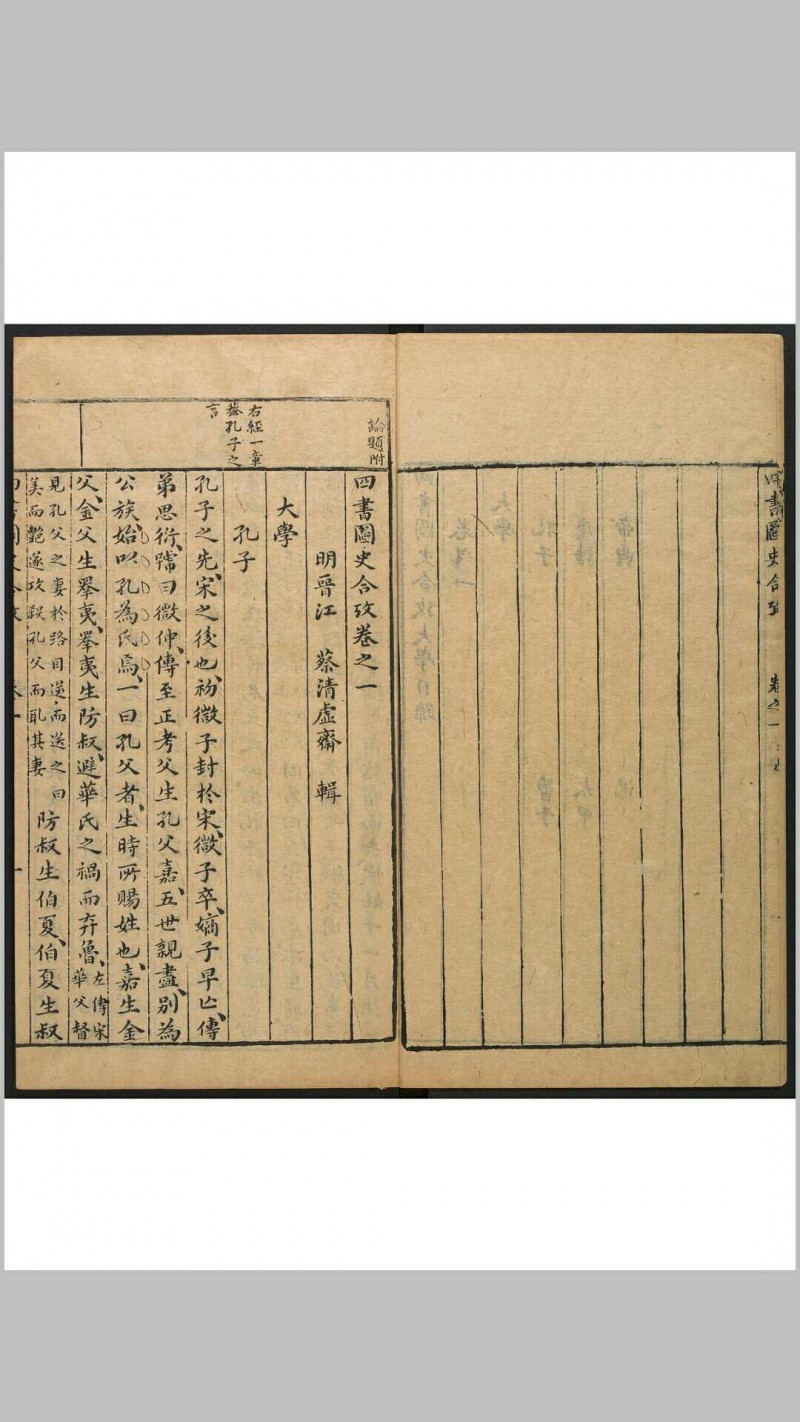 四書圖史合攷 卷之一
論題附
四書圖史合攷卷之一
明晉江 蔡清虛齋 輯
大學
孔子
右經一章
蓋孔子之
言
孔子之先、宋之後也、初微子封於宋、微子卒、嫡子早亡、傳
弟思衍、號曰微仲、傳至正考父生孔父嘉、五世親盡、別為
公族、始以孔為氏焉、一曰孔父者、生時所賜姓也、嘉生金
父、金父生睪夷、睪夷生防叔、避華氏之禍而奔魯、左傳宋
華父督
見孔父之妻於路目逆而送之曰
美而艷遂攻殺孔父而取其妻
防叔生伯夏、伯夏生叔